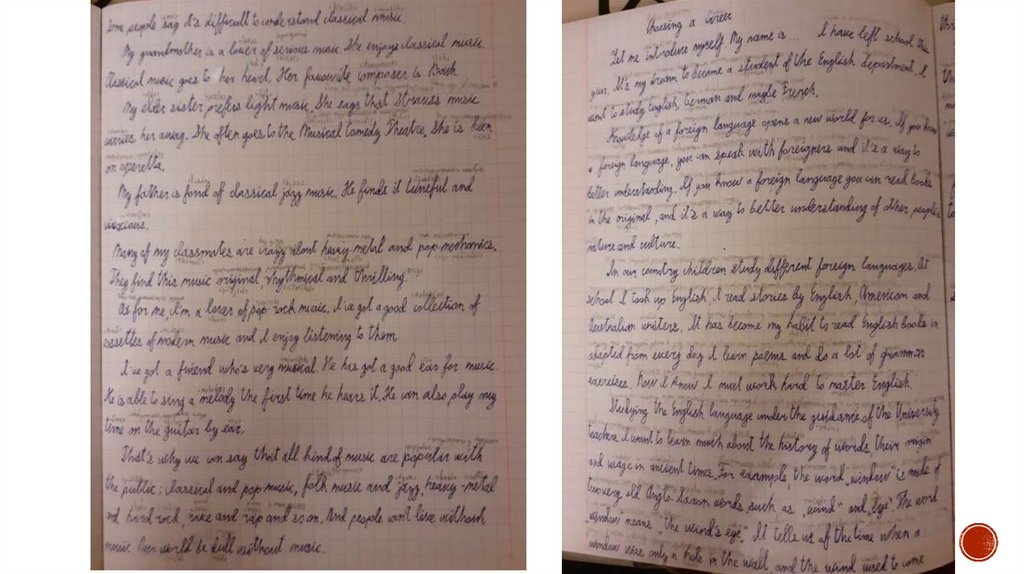 Some people say it's difficult to understand classical music.
My grandmother is a lover of serious music. She enjoys classical music.
Classical music goes to her heart. Her favourite composer is Bach.
My elder sister prefers light music. She says that Strauss music
carries her away. She often goes to the Musical Comedy Theatre. She is keen
on operetta.
My father is fond of classical jazz music. He finds it tuneful and
Many of my classmates are crazy about heavy metal and pop mechanics.
They find this music original, rhythmical and thrilling.
As for me, I'm a lover of pop-rock music. I've got a good collection of
cassettes of modern music and I enjoy listening to them.
I've got a friend who's very musical. He has got a good ear for music.
He is able to sing a melody the first time he hears it. He can also play any
time on the guitar by ear.
That's why we can say that all kind of music are popular with
the public: classical and pop music, folk music and jazz, heavy metal
and hard rock, rave and rap and so on. And people can't live without
music. Our world be dull without music.
Choosing a career
Let me introduce myself. My name is ... I have left school this
year. It's my dream to become a student of the English department. I
want to study English, German and maybe French.
Knowledge of a foreign language opens a new world for us. If you know
a foreign language, you can speak with foreigners and it's a way to
better understanding. If you know a foreign language you can read books
in the original, and it's a way to better understanding of other people's
nature and culture.
In our country children study different foreign languages. At
school I took up English. I read stories by English, American and
Australian writers. It has become my habit to read English books in
adapted from every day. I learn poems and do a lot of grammar
exercises. Now I know I must work hard to master English.
Studying the English language under the guidance of the University
teachers I want to learn much about the history of words, their origin
and usage in ancient times. For example, the word "window" is made of
two very old Anglo-Saxon words, such as "wind" and "eye". The word
"window" means "the wind's eye". It tells us of the time when a
window was only a hole in the wall, and the wind used to come